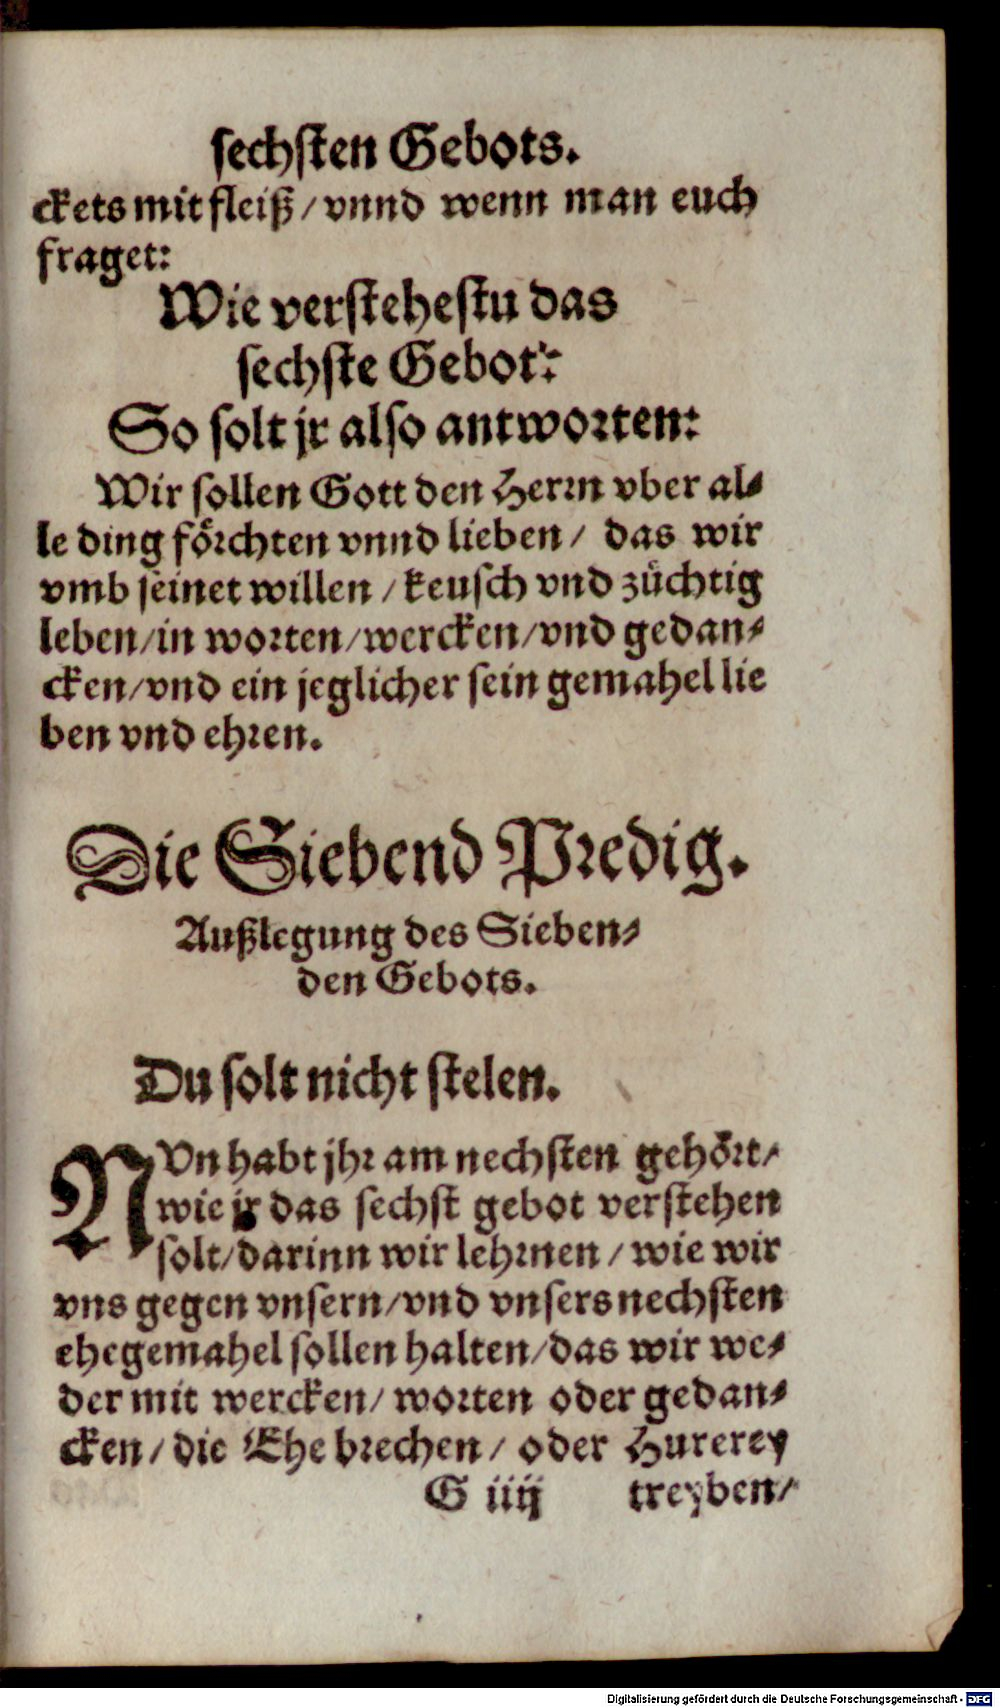 sechsten Gebots.
ckets mit fleiß/ vnnd wenn man euch
fraget:
Wie verstehestu das
sechste Gebot?
So solt jr also antworten:
Wir sollen Gott den Herrn vber al⸗
le ding foͤrchten vnnd lieben/ das wir
vmb seinet willen/ keusch vnd zuͤchtig
leben/ in worten/ wercken/ vnd gedan⸗
cken/ vnd ein jeglicher sein gemahel lie
ben vnd ehren.
Die Siebend Predig.
Außlegung des Sieben⸗
den Gebots.
Du solt nicht stelen.
NVn habt jhr am nechsten gehoͤrt/
wie jr das sechst gebot verstehen
solt/ darinn wir lehrnen/ wie wir
vns gegen vnsern/ vnd vnsers nechsten
ehegemahel sollen halten/ das wir we⸗
der mit wercken/ worten oder gedan⸗
cken/ die Ehe brechen/ oder Hurerey
G iiij treyben/
Digitalisierung gefördert durch die Deutsche Forschungsgemeinschaft - DFG